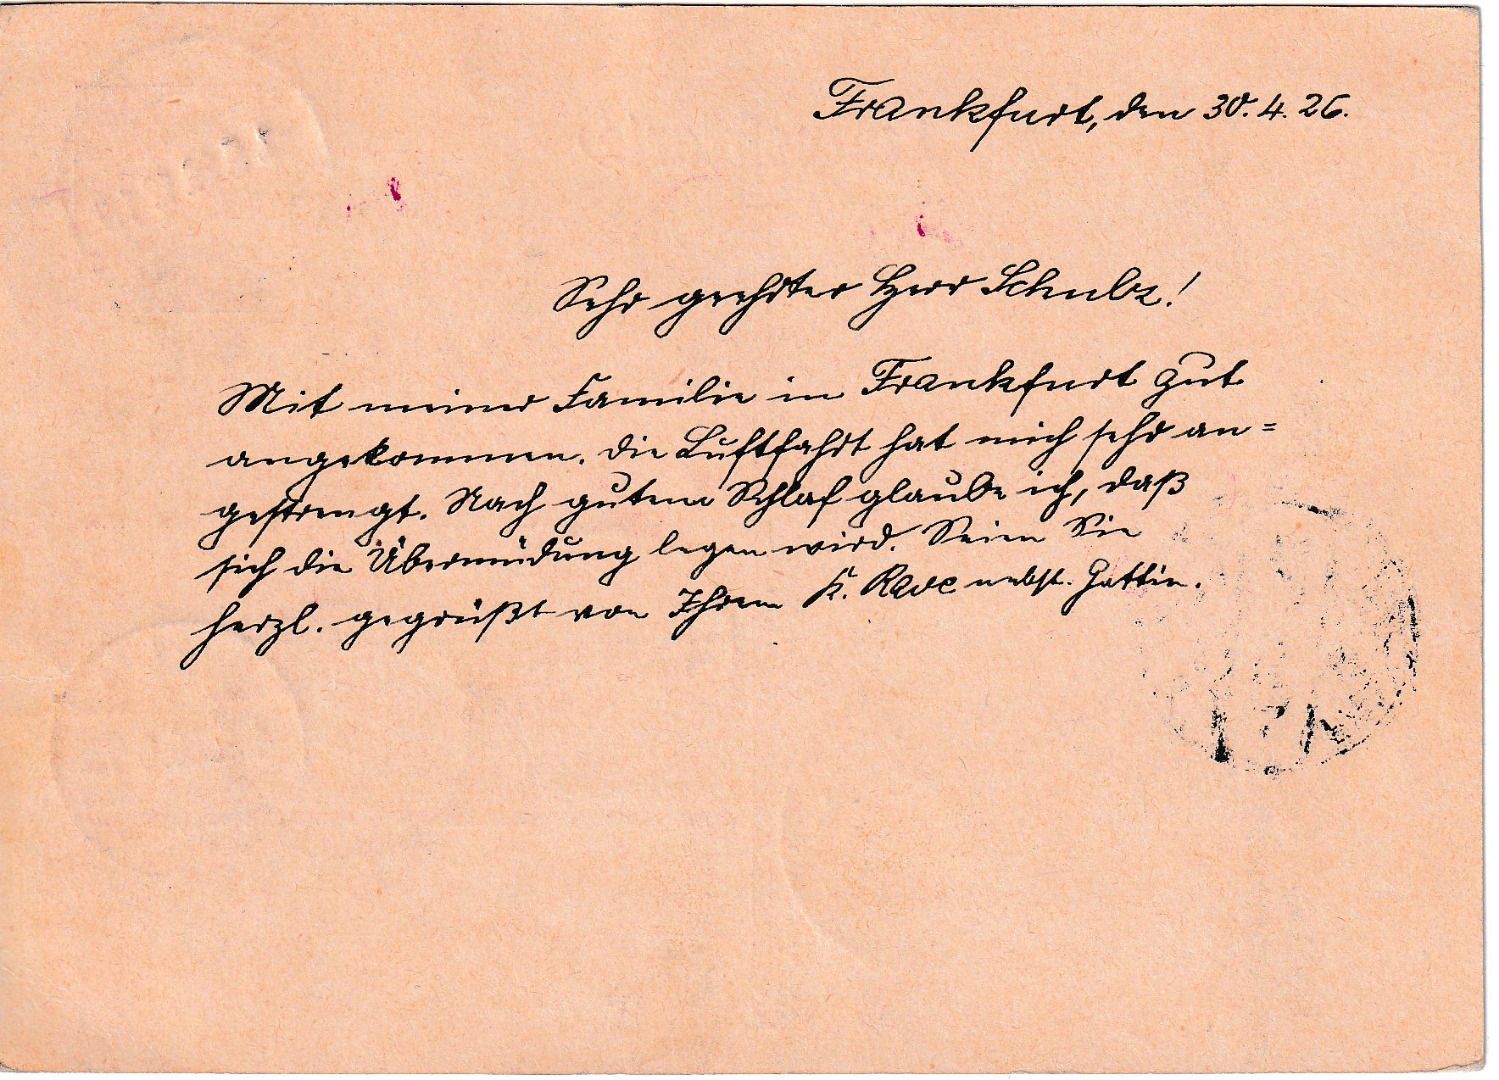 Frankfurt, den 30. 4. 26.
Sehr geehrter Herr Schulz!
Mit meiner Familie in Frankfurt gut
angekommen. Die Luftfahrt hat mich sehr an=
gestrengt. Nach gutem Schlaf glaube ich, daß
sich die Übermüdung legen wird. Seien Sie
herzl. gegrüßt von Ihrem K. Rave nebst. Gattin.